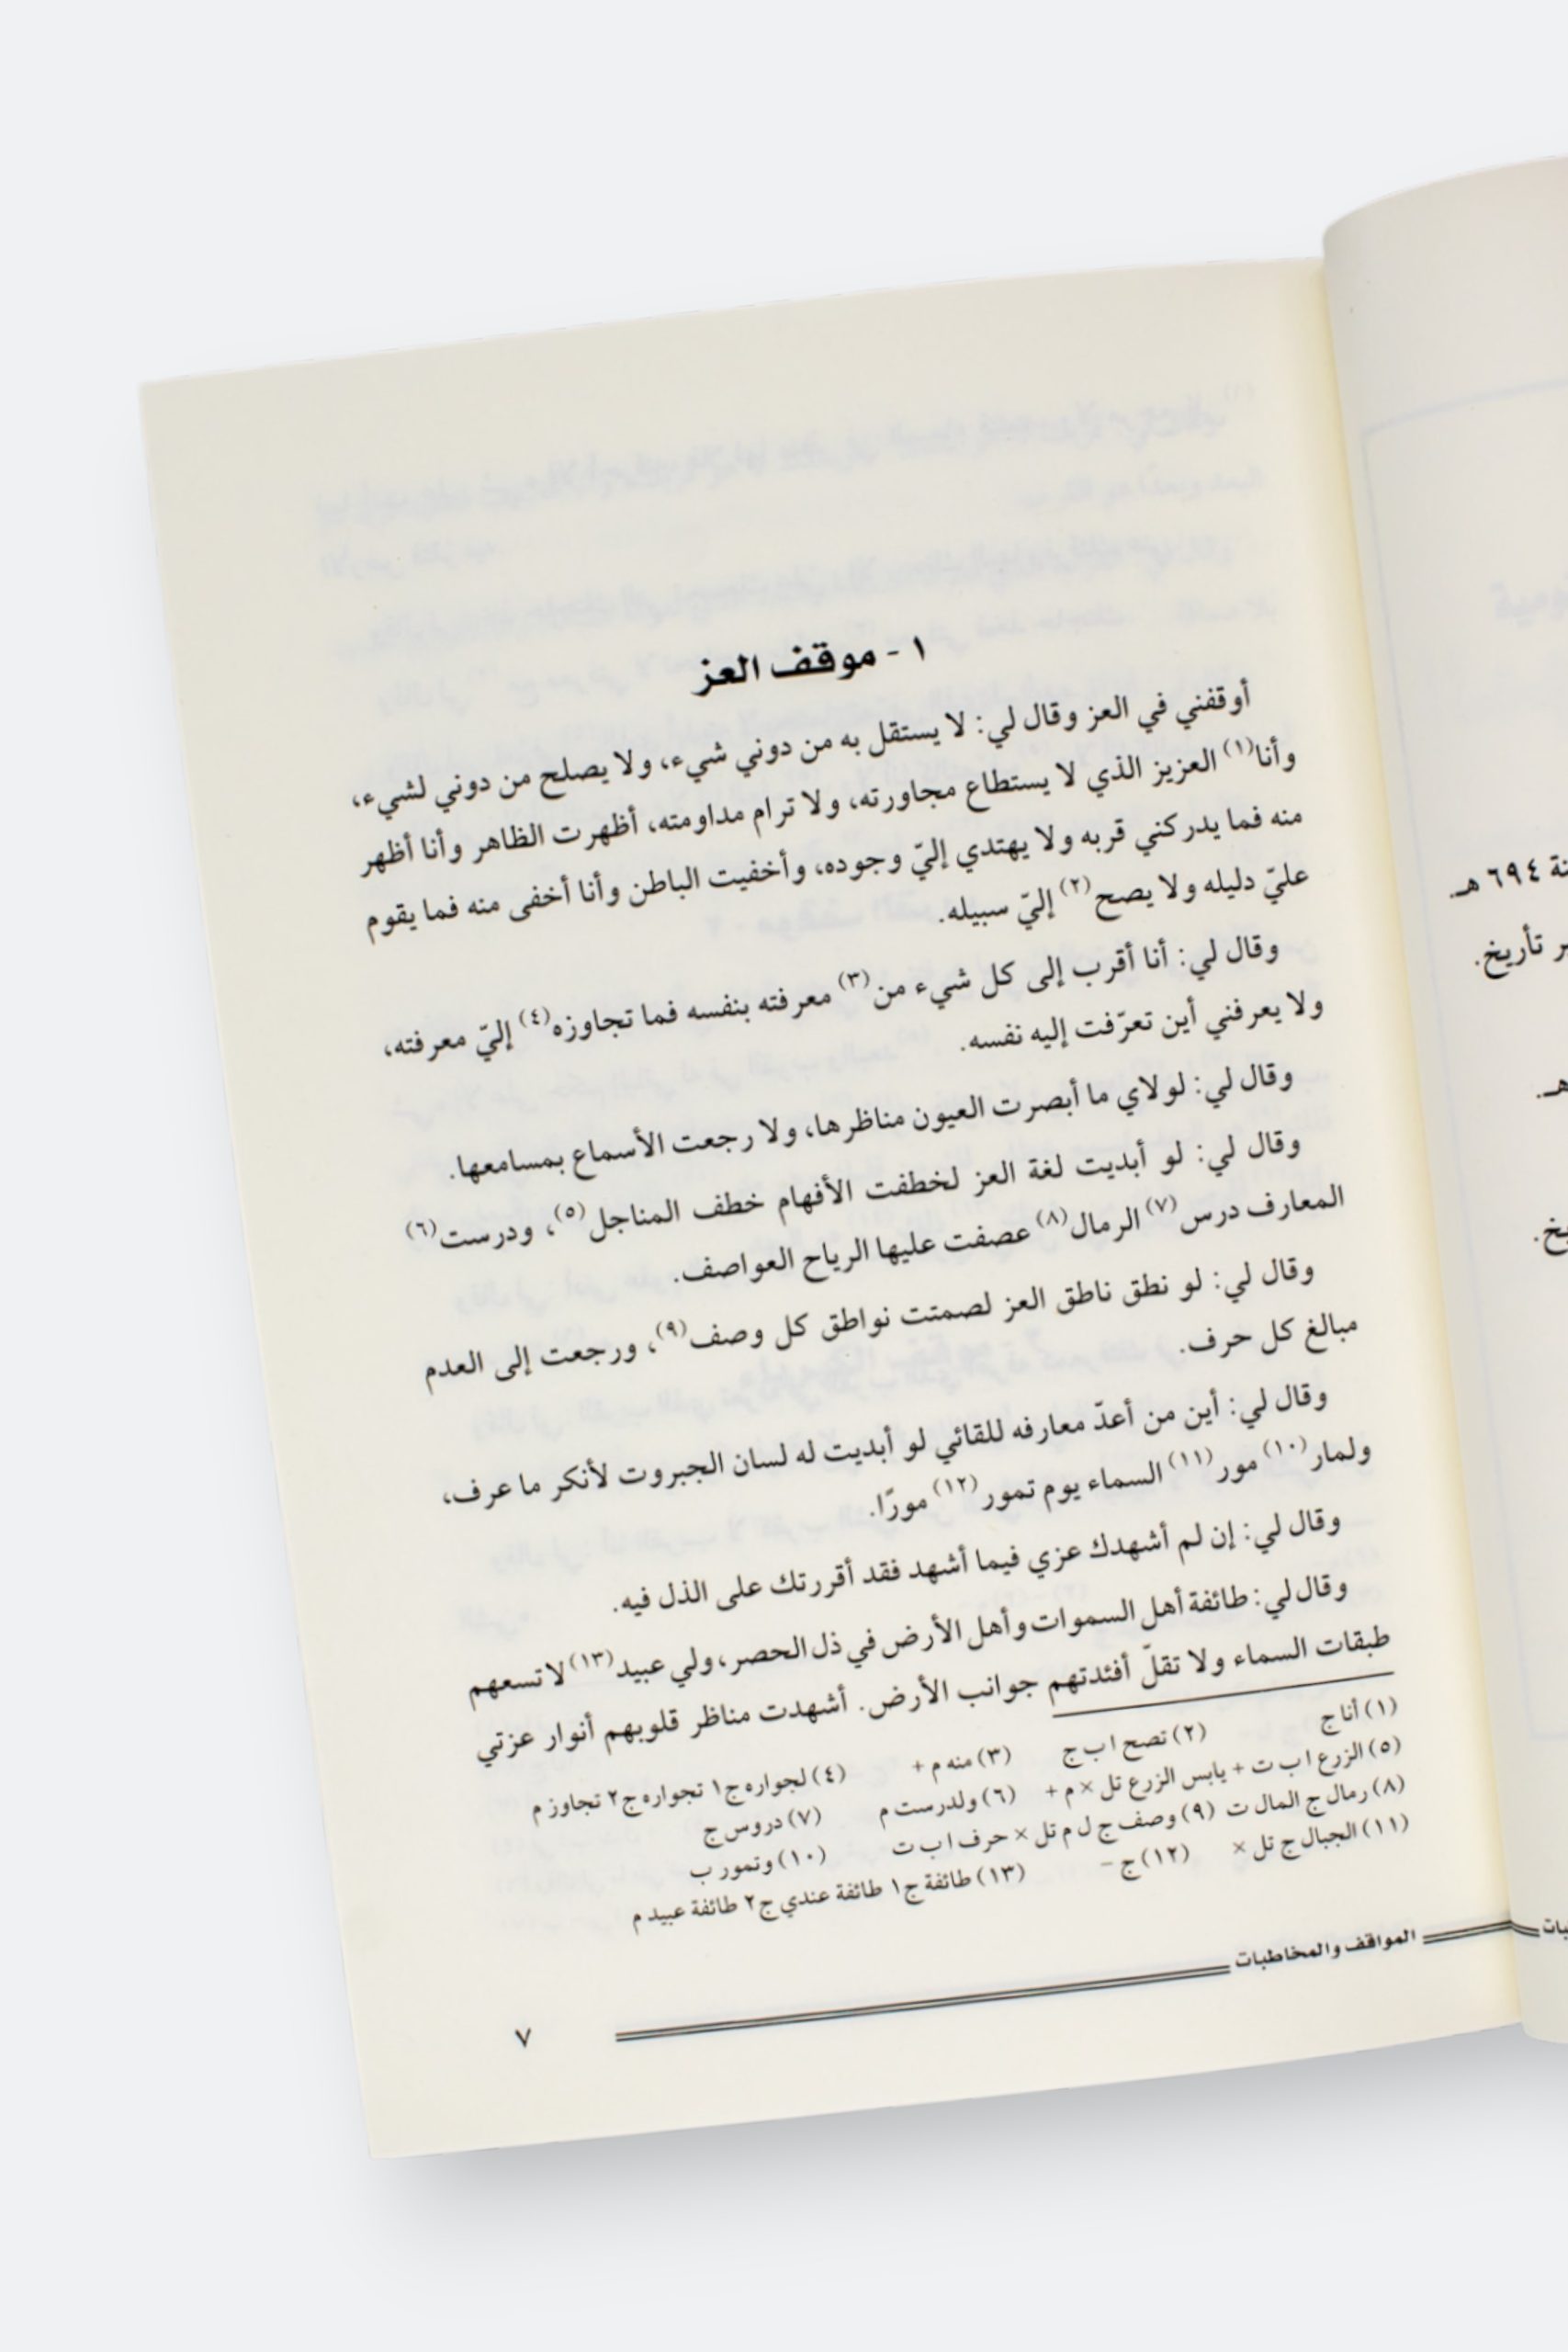 ١ - موقف العز
أوقفني في العز وقال لي: لا يستقل به من دوني شيء، ولا يصلح من دوني لشيء،
وأنا(١) العزيز الذي لا يستطاع مجاورته، ولا ترام مداومته، أظهرت الظاهر وأنا أظهر
منه فما يدركني قربه ولا يهتدي إليّ وجوده، وأخفيت الباطن وأنا أخفى منه فما يقوم
عليّ دليله ولا يصح(٢) إليّ سبيله.
وقال لي: أنا أقرب إلى كل شيء من(٣) معرفته بنفسه فما تجاوزه(٤) إليّ معرفته،
ولا يعرفني أين تعرّفت إليه نفسه.
وقال لي: لولاي ما أبصرت العيون مناظرها، ولا رجعت الأسماع بمسامعها.
وقال لي: لو أبديت لغة العز لخطفت الأفهام خطف المناجل(٥)، ودرست(٦)
المعارف درس(٧) الرمال(٨) عصفت عليها الرياح العواصف.
وقال لي: لو نطق ناطق العز لصمتت نواطق كل وصف(٩)، ورجعت إلى العدم
مبالغ كل حرف.
وقال لي: أين من أعدّ معارفه للقائي لو أبديت له لسان الجبروت لأنكر ما عرف،
ولمار(١٠) مور(١١) السماء يوم تمور(١٢) مورًا.
وقال لي: إن لم أشهدك عزي فيما أشهد فقد أقررتك على الذل فيه.
وقال لي: طائفة أهل السموات وأهل الأرض في ذل الحصر، ولي عبيد(١٣) لا تسعهم
طبقات السماء ولا تقلّ أفئدتهم جوانب الأرض. أشهدت مناظر قلوبهم أنوار عزتي
(١) أنا ج (٢) تصح ا ب ج (٣) منه م + (٤) لجواره ج ١ تجواره ج ٢ تجاوز م
(٥) الزرع ا ب ت + يابس الزرع تل × م + (٦) ولدرست م (٧) دروس ج
(٨) رمال ج المال ت (٩) وصف ج ل م تل × حرف ا ب ت (١٠) وتمور ب
(١١) الجبال ج تل × (١٢) ج - (١٣) طائفة ج ١ طائفة عندي ج ٢ طائفة عبيد م
المواقف والمخاطبات
٧
نة ٦٩٤ هـ.
ر تأريخ.
هـ.
يخ.